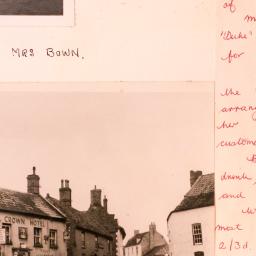 MRS BOWN.
CROWN HOTEL
of
m
"Duke"
for
the
arrang
her
custome
drink
and
W
most
2/3d.